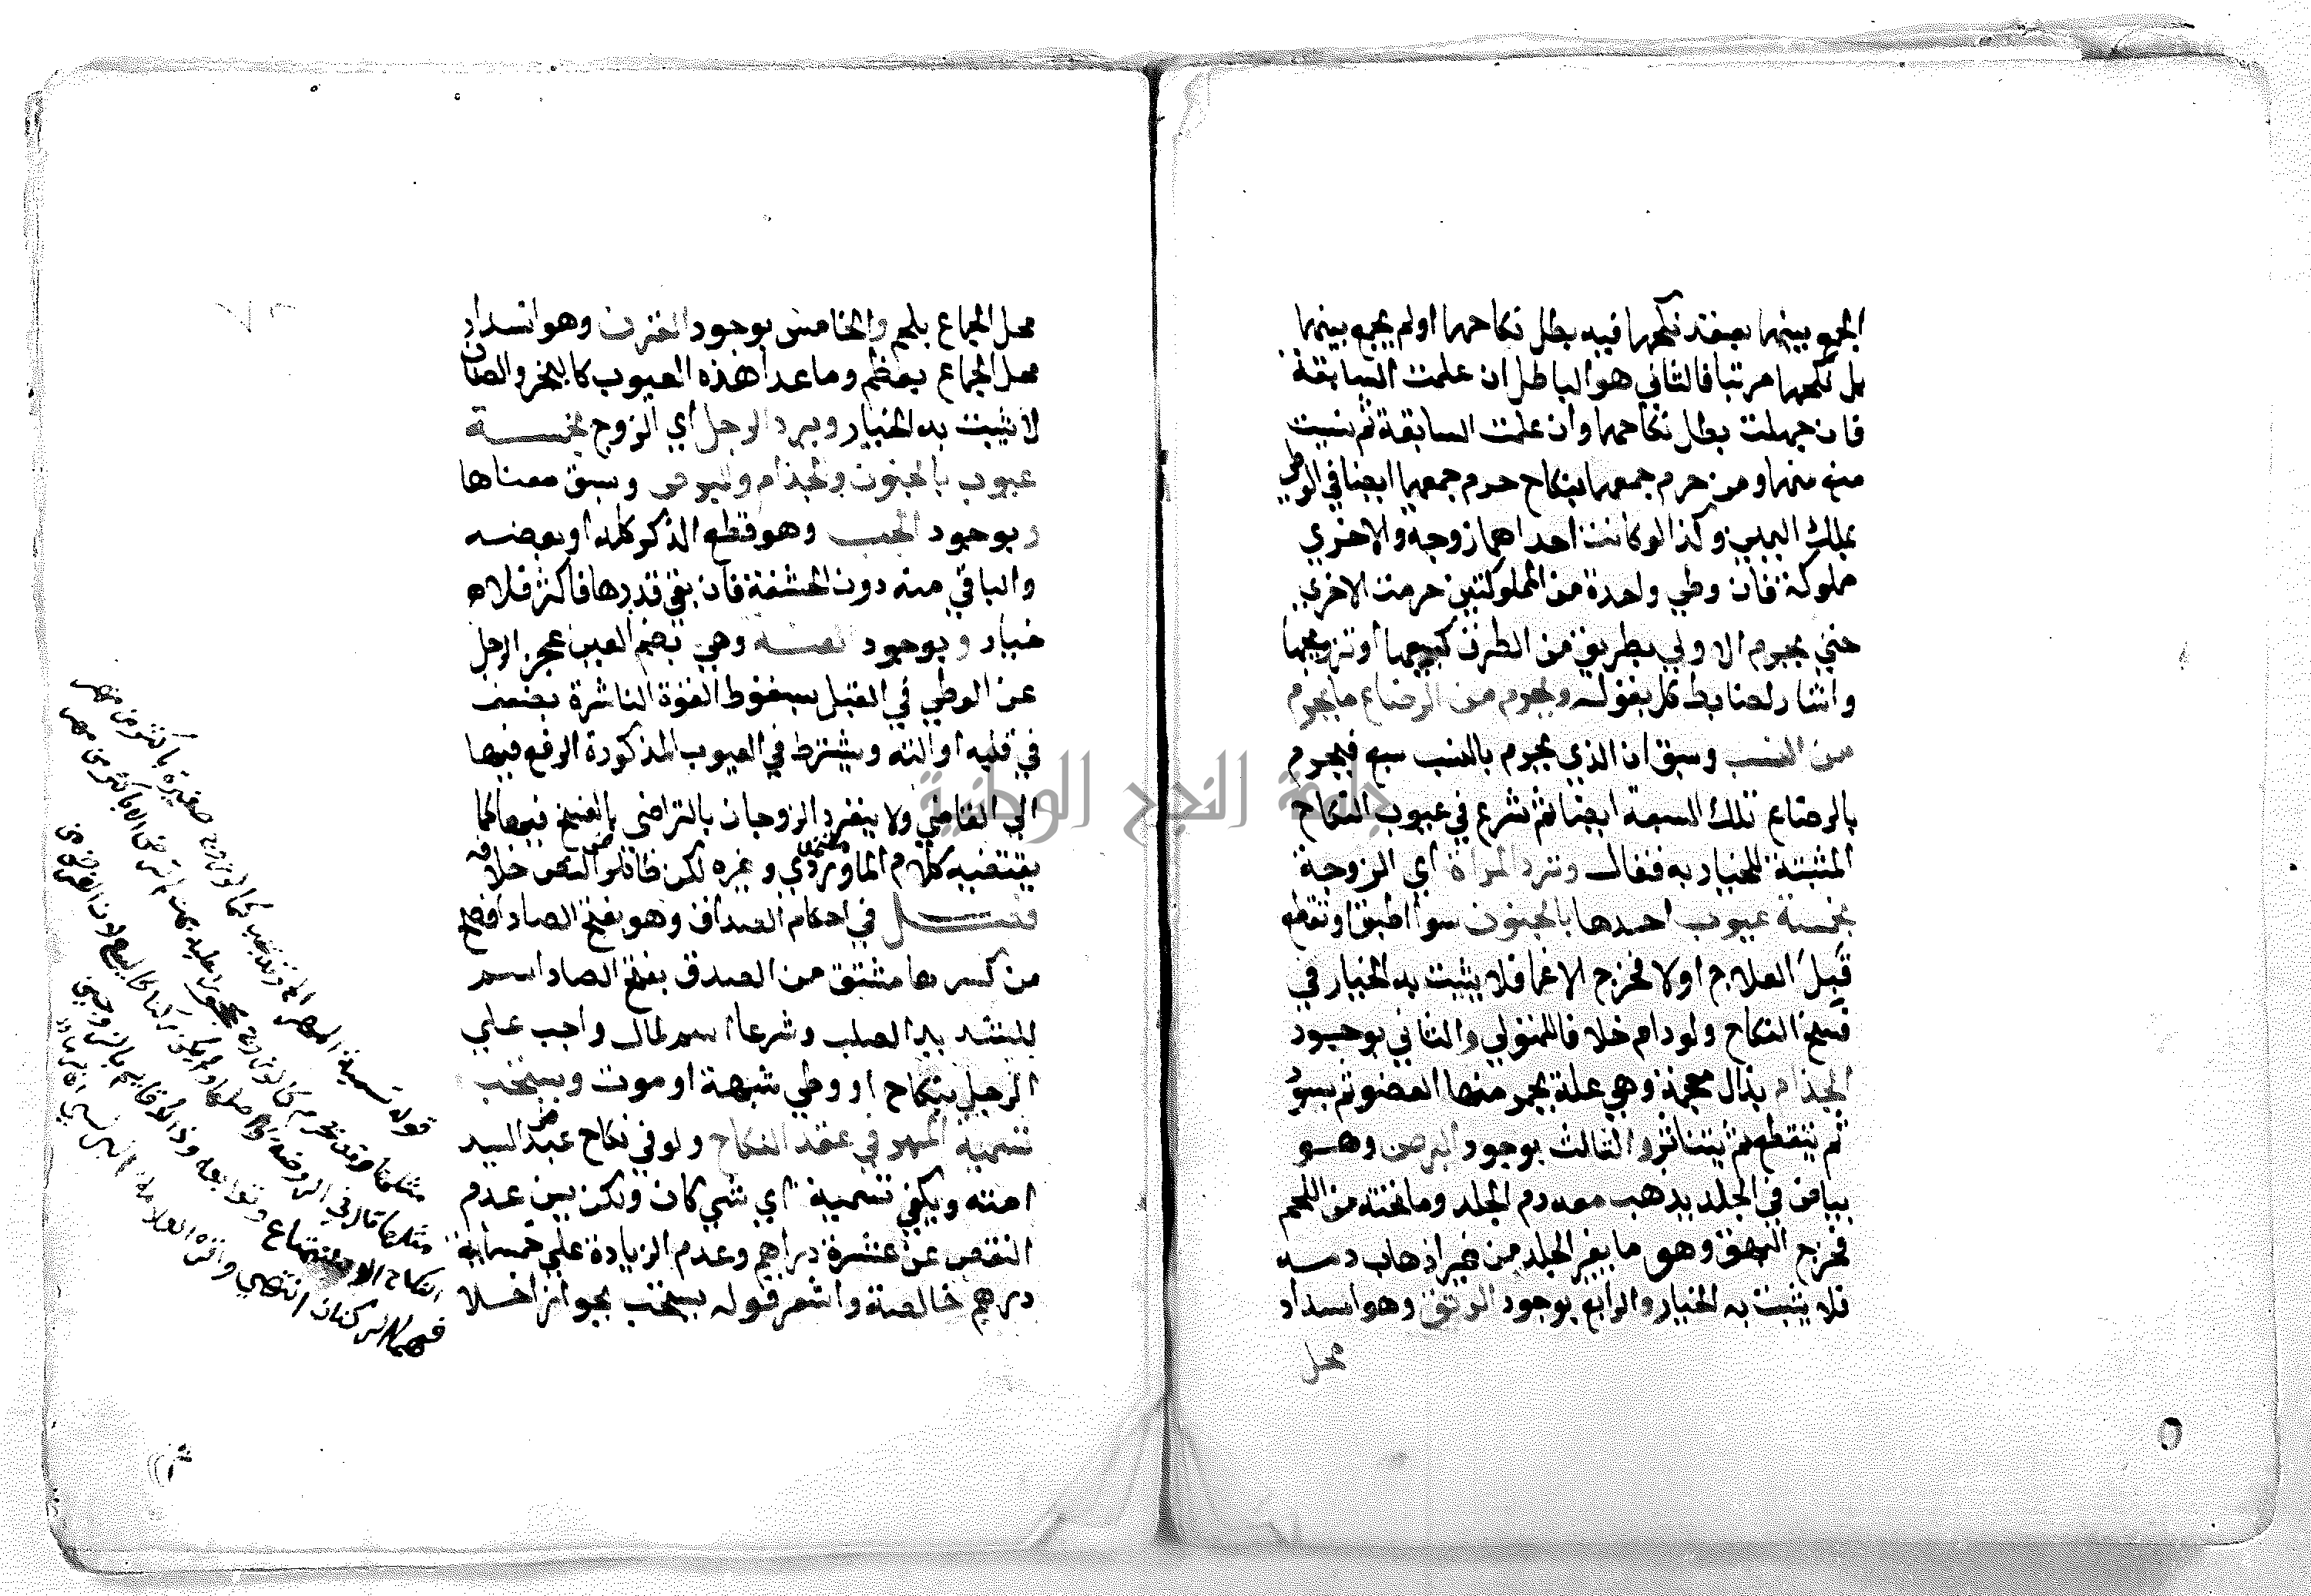 الجمع بينهما بعقد نكحهما فيه بطل نكاحهما اولم يجمع بينهما
بل نكحهما مرتبا فالثاني هو الباطل ان علمت السابقة
فان جهلت بطل نكاحهما وان علمت السابقة ثم نسيت
منع منهما ومن حرم جمعهما بنكاح حرم جمعهما ايضا في الوطي
بملك اليمين وكذا لو كانت احداهما زوجة والاخري
مملوكة فان وطي واحدة من المملوكتين حرمت الاخري
حتي يحرم الاولي بطريق من الطرق كبيعها او تزويجها
واشار لضابط كل بقوله ويحرم من الرضاع ما يحرم
من النسب وسبق ان الذي يحرم بالنسب سبع فيحرم
بالرضاع تلك السبعة ايضا ثم شرع في عيوب النكاح
المثبتة للخيار به فقال وترد المراة اي الزوجة
بخمسة عيوب احدها بالجنون سوا اطبق او تقطع
قبل العلاج اولا فخرج الاغما فلا يثبت به الخيار في
فسخ النكاح ولو دام خلافا للمتولي والثاني بوجود
الجذام بذال معجمة وهي علة يحمر منها العضو ثم يسود
ثم يتقطع ثم يتناثر والثالث بوجود البرص وهو
بياض في الجلد يذهب معه دم الجلد وما تحته من اللحم
فخرج البهق وهو ما يغير الجلد من غير اذهاب دمه
فلا يثبت به الخيار والرابع بوجود الرتق وهو انسداد
محل
محل الجماع بلحم والخامس بوجود القرن وهو انسداد
محل الجماع بعظم وما عدا هذه العيوب كالبخر والصنان
لا يثبت به الخيار ويرد الرجل اي الزوج بخمسة
عيوب بالجنون والجذام والبرص وسبق معناها
وبوجود الجب وهو قطع الذكر كله او بعضه
والباقي منه دون الحشفة فان بقي قدرها فاكثر فلا
خيار وبوجود العنة وهي بضم العين عجز الرجل
عن الوطي في القبل بسقوط القوة الناشرة بضعف
في قلبه او الته ويشترط في العيوب المذكورة الرفع فيها
الي القاضي ولا ينفرد الزوجان بالتراضي بالفسخ فيها كما
يقتضيه كلام الماوردي وغيره لكن ظاهر النص خلافه
فصل في احكام الصداق وهو بفتح الصاد افصح
من كسرها مشتق من الصدق بفتح الصاد اسم
للشديد الصلب وشرعا اسم لمال واجب علي
الرجل بنكاح او وطي شبهة او موت ويستحب
تسمية المهر في عقد النكاح ولو في نكاح عبد السيد
امته ويكفي تسمية اي شي كان ولكن يسن عدم
النقص عن عشرة دراهم وعدم الزيادة علي خمسماية
درهم خالصة واشعر قوله يستحب بجواز اخلا
قوله تسمية المهر الخ وقد تجب كما لو زوج صغيرة باكثر من مهر
مثلها وقد تحرم كما لو زوج محجورا عليه
مثلها قال في الروضة
النكاح الا
فهما الركنان انتهي واقره العلامة
جامعة النجاح الوطنية